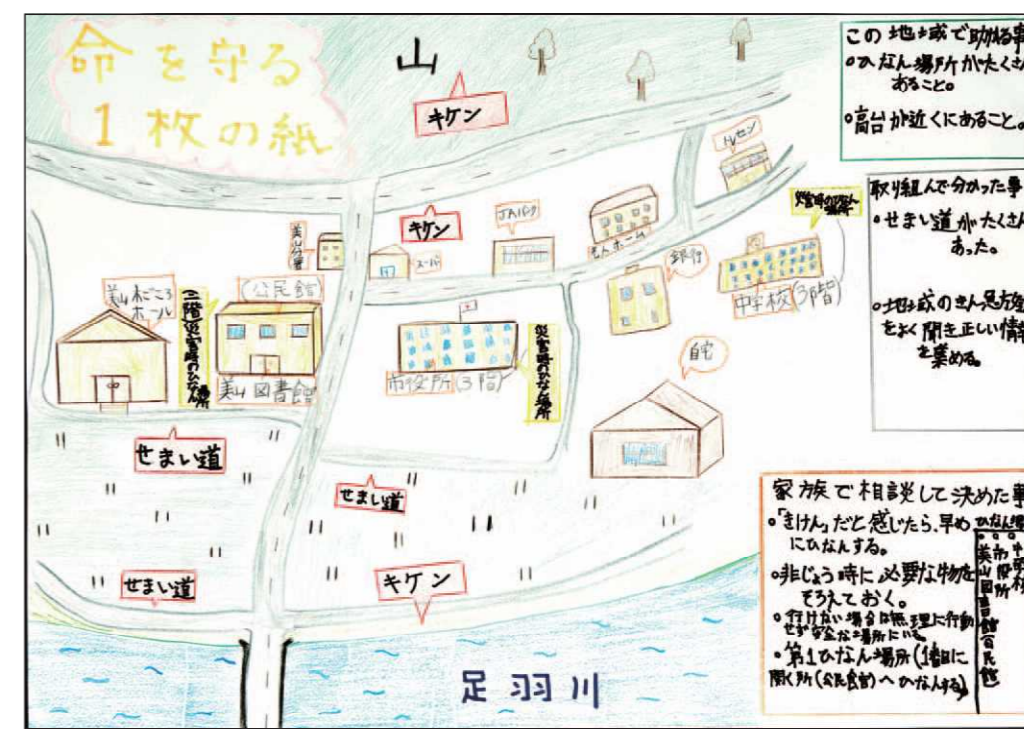 命を守る
1枚の紙
山
キケン
トレセン
キケン
JAバンク
老人ホーム
災害時のひなん
場所
美山分署
スーパー
銀行
中学校(3階)
美山木ごころ
ホール
三階災害時のひなん場所
(公民館)
美山図書館
市役所(3階)
災害時のひなん場所
自宅
せまい道
せまい道
せまい道
キケン
足羽川
この地域で助かる事
○ひなん場所がたくさん
あること。
○高台が近くにあること。
取り組んで分かった事
・せまい道がたくさん
あった。
をよく聞き正しい情
を集める。
家族で相談して決めた事
○「きけん」だと感じたら、早め
にひなんする。
○非じょう時に必要な物を
そろえておく。
○行けない場合は無理に行動
せず安全な場所にいる。
・第1ひなん場所(1番目に
開く所(公民館)へひなんする)
ひなん場
○中学校
○市役所
○美山図書館(公民館)